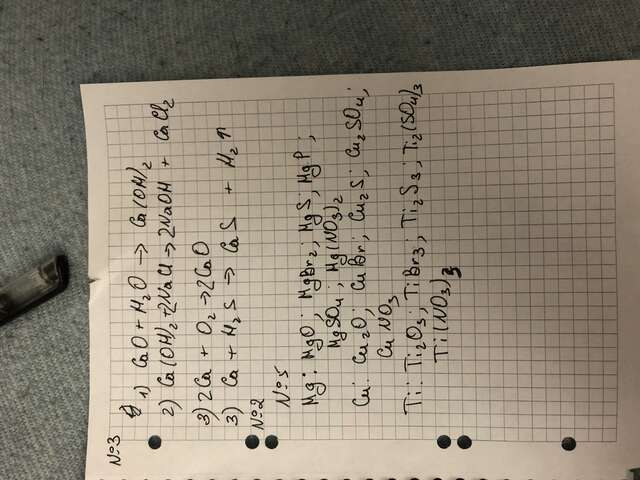 №3
1) CaO + H2O → Ca(OH)2
2) Ca(OH)2 + 2NaCl → 2NaOH + CaCl2
3) 2Ca + O2 → 2CaO
3) Ca + H2S → CaS + H2↑
№2
№5
Mg: MgO; MgBr2; MgS; MgP;
MgSO4; Mg(NO3)2
Cu: Cu2O; CuBr; Cu2S; Cu2SO4;
CuNO3
Ti: Ti2O3; TiBr3; Ti2S3; Ti2(SO4)3
Ti(NO3)3